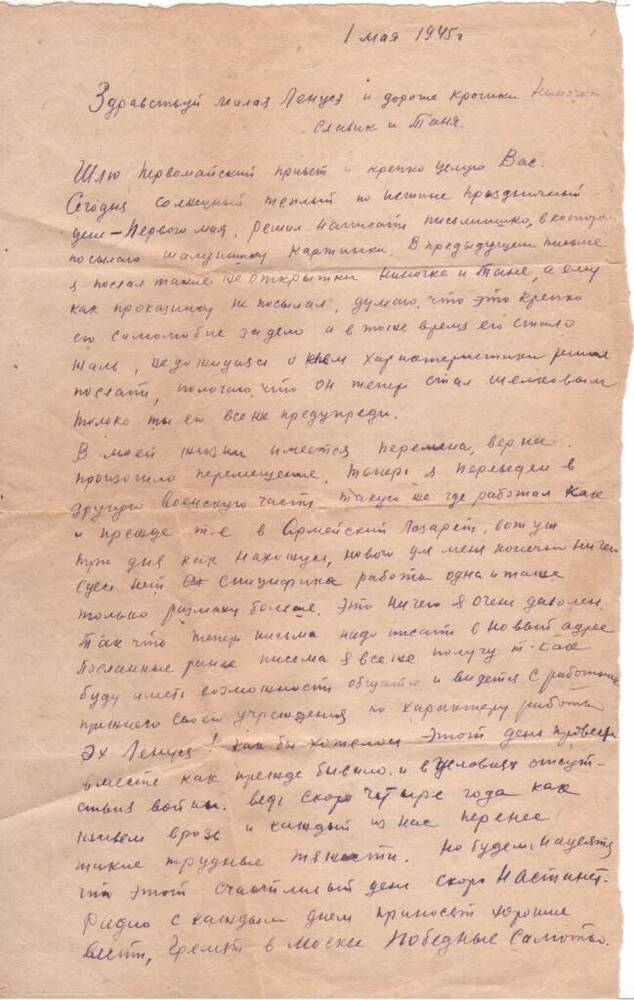 1 мая 1945 г
Здравствуй милая Ленуся и дорогие крошки Ниночка
Славик и Таня.
Шлю первомайский привет и крепко целую Вас.
Сегодня солнечный теплый по истине праздничный
день – Первого мая. Решил написать письмишко, в котором
посылаю шалунишку картинки. В предыдущем письме
я послал такие же открытки Ниночке и Тане, а ему
как проказнику не посылал, думаю, что это крепко
его самолюбие задело и в тоже время его стало
жаль, не дожидаясь о нем характеристики решил
послать, полагаю, что он теперь стал шелковым
только ты его все же предупреди.
В моей жизни имеется перемена, вернее
произошло перемещение. Теперь я переведен в
другую воинскую часть такую же где работал как
и прежде т-е в Армейский Лазарет, вот уж
три дня как нахожусь, нового для меня конечно ничего
здесь нет специфика работы одна и таже
только размаху больше. Это ничего я очень доволен.
Так что теперь письма надо писать в новый адрес
Посланные ранее письма я все же получу т-как
буду иметь возможность общаться и видется с работниками
прежнего своего учреждения по характеру работы
Эх Ленуся! как бы хотелось этот день провести
вместе как прежде бывало и в условиях отсут-
ствия войны. Ведь скоро четыре года как
живем врозь и каждый из нас перенес
такие трудные тяжести. Но будем надеятся
что этот счастливый день скоро настанет.
Радио с каждым днем приносит хорошие
вести, гремят в Москве победные салюты.